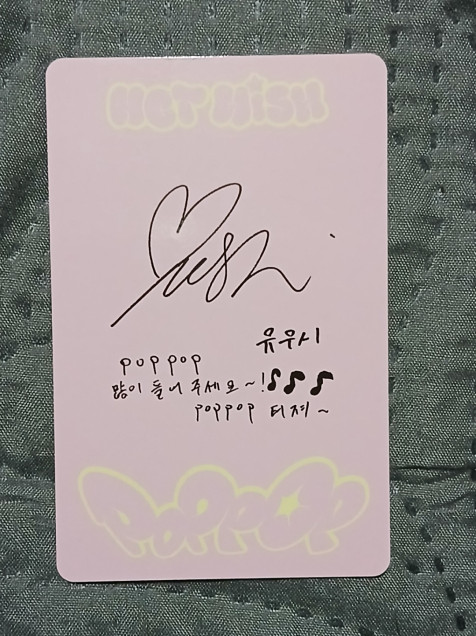 NCT WISH
Yushi
유우시
poppop
많이 들어 주세요~!♪♪♪
poppop 터져~
POPPOP